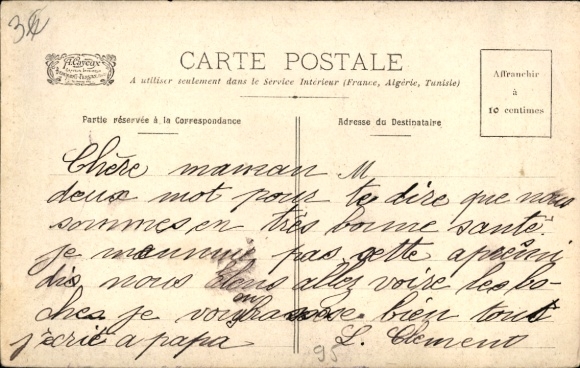 3€
A. Cayeux
CARTE POSTALE
A utiliser seulement dans le Service Intérieur (France, Algérie, Tunisie)
Affranchir
à
10 centimes
Partie réservée à la Correspondance
Adresse du Destinataire
Chère maman M
deux mot pour te dire que nous
sommes en très bonne santé
je pas cette aprèsmi
dis nous allez voire les bo-
ches je vous bien tous
j'écrie a papa L. Clement
95